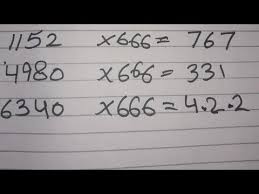 1152 x666= 767
4980 x666= 331
6340 x666= 4.2.2